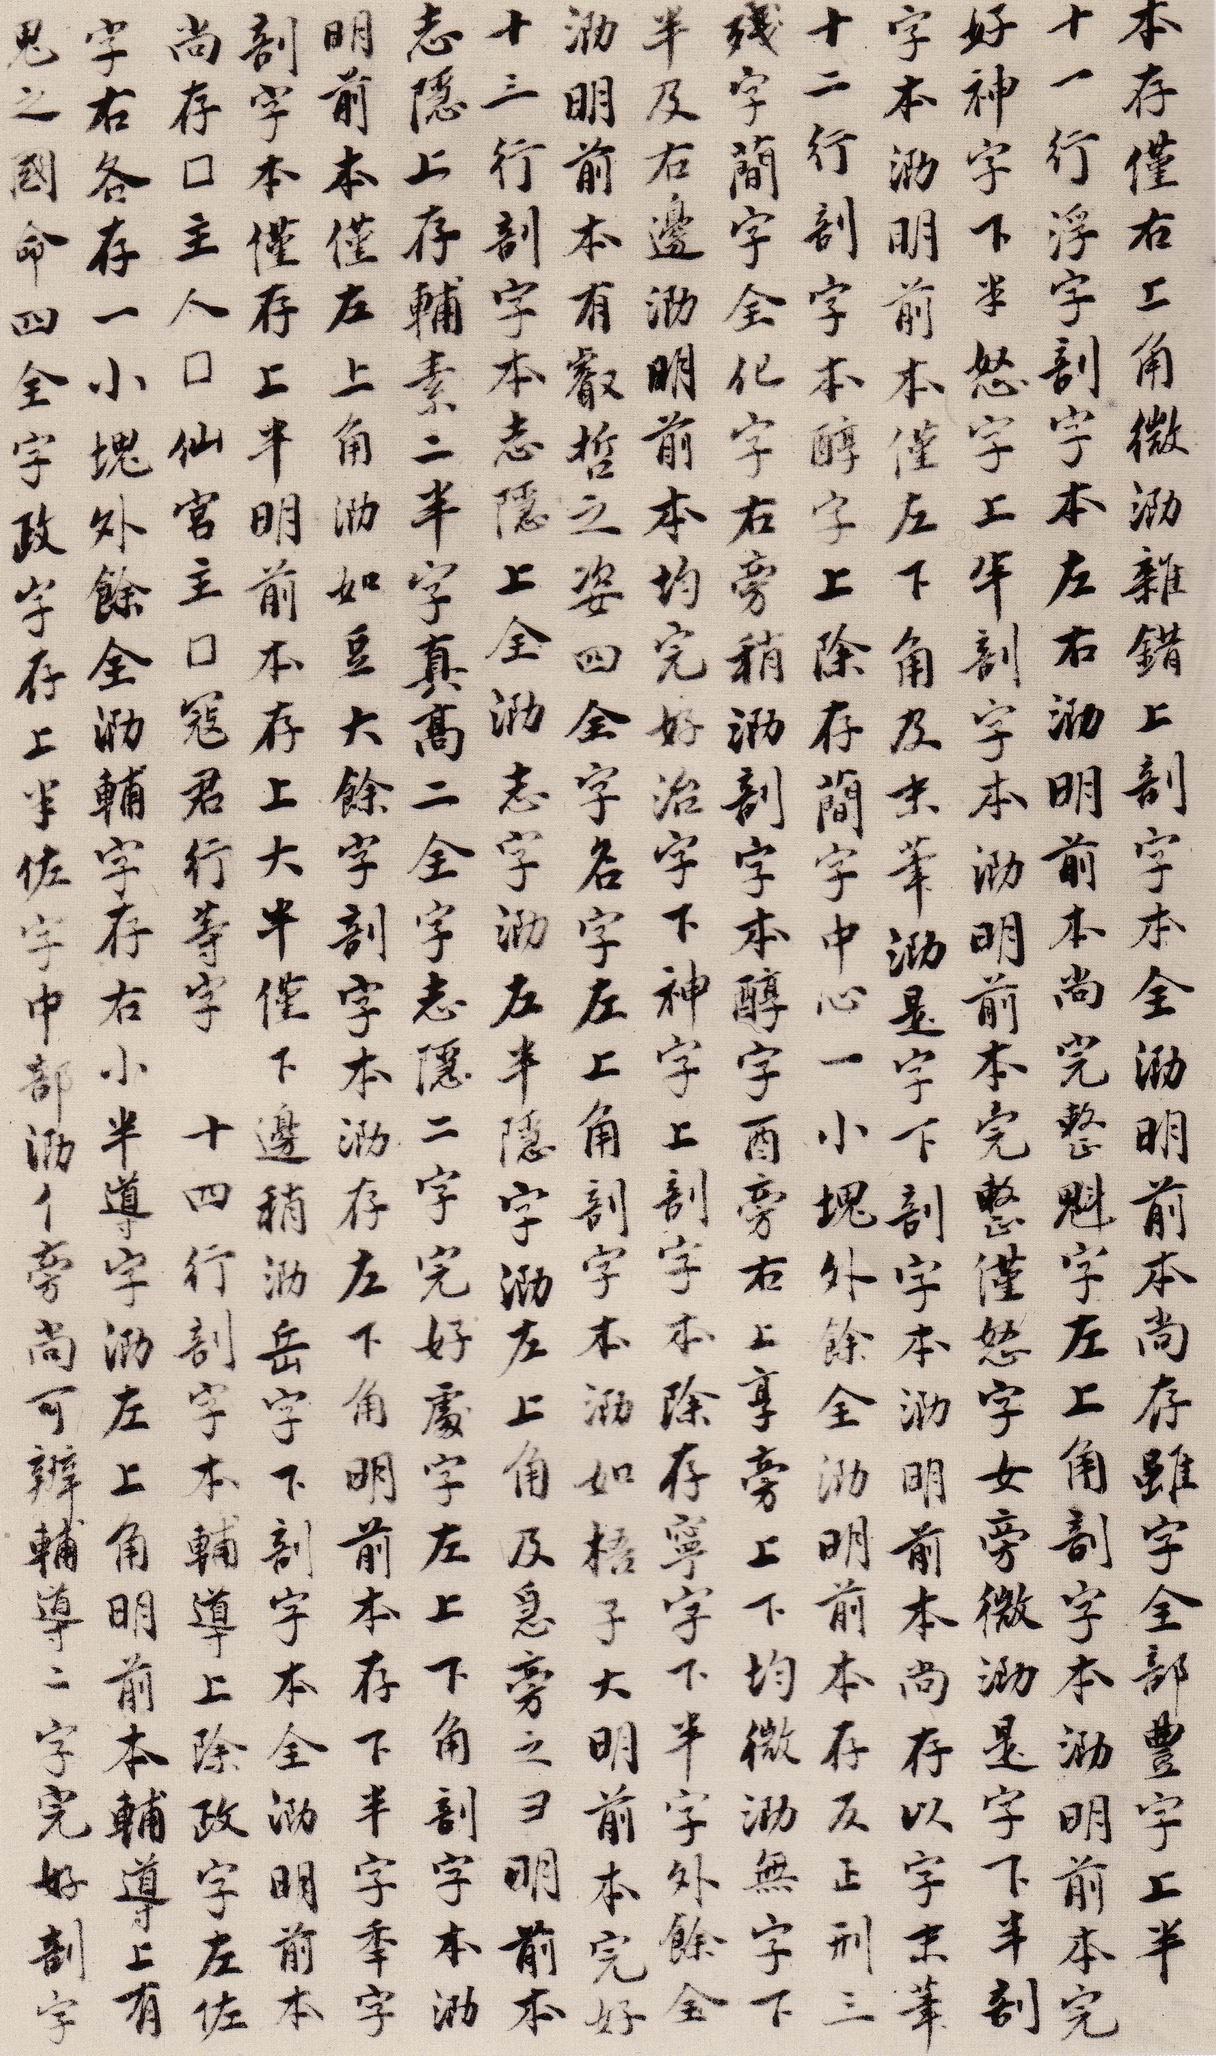 本存僅右上角微泐雜錯上剖字本全泐明前本尚存雖字全部豐字上半
十一行浮字剖字本左右泐明前本尚完整魁字左上角剖字本泐明前本完
好神字下半怒字上半剖字本泐明前本完整僅怒字女旁微泐是字下半剖
字本泐明前本僅左下角及末筆泐是字下剖字本泐明前本尚存以字末筆
十二行剖字本醇字上除存蕳字中心一小塊外餘全泐明前本存反正刑三
殘字蕳字全化字右旁稍泐剖字本醇字酉旁右上享旁上下均微泐無字下
半及右邊泐明前本均完好治字下神字上剖字本除存寧字下半字外餘全
泐明前本有叡哲之姿四全字名字左上角剖字本泐如梧子大明前本完好
十三行剖字本志隱上全泐志字泐左半隱字泐左上角及急旁之彐明前本
志隱上存輔素二半字真高二全字志隱二字完好處字左上下角剖字本泐
明前本僅左上角泐如豆大餘字剖字本泐存左下角明前本存下半字季字
剖字本僅存上半明前本存上大半僅下邊稍泐岳字下剖字本全泐明前本
尚存口主人口仙宮主口寇君行等字 十四行剖字本輔導上除政字左佐
字右各存一小塊外餘全泐輔字存右小半導字泐左上角明前本輔導上有
鬼之國命四全字政字存上半佐字中部泐亻旁尚可辨輔導二字完好剖字